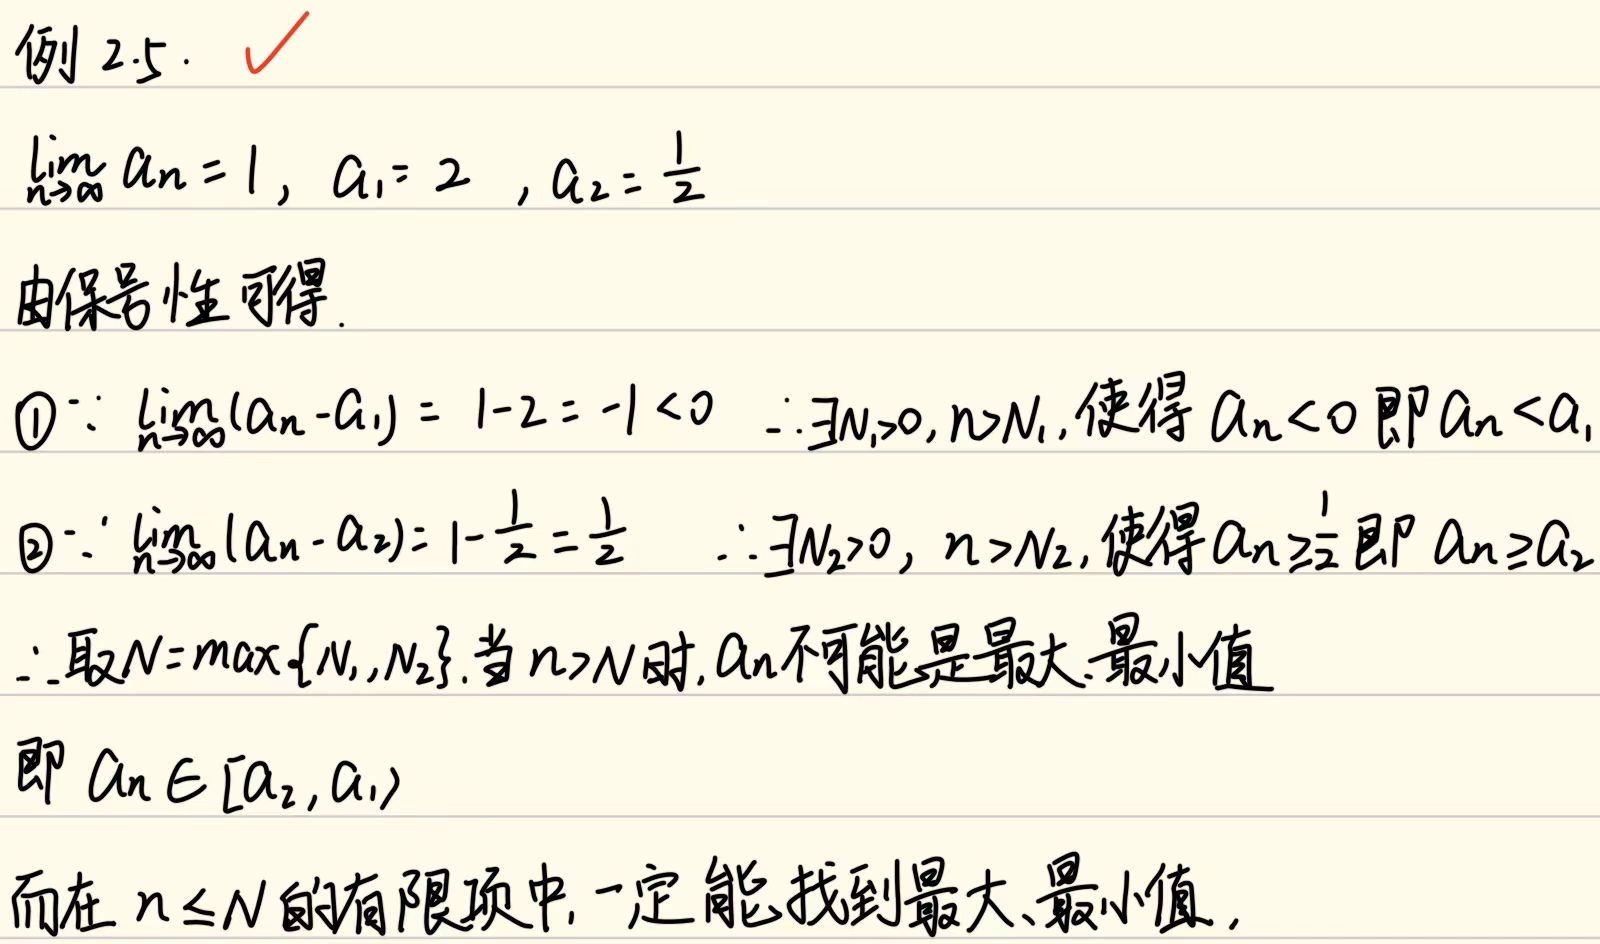 例 2.5. ✓
lim n→∞ an = 1, a₁ = 2 , a₂ = 1/2
由保号性可得.
① ∵ lim n→∞ (an - a₁) = 1-2 = -1 < 0 ∴ ∃N₁>0, n>N₁, 使得 an < 0 即 an < a₁
② ∵ lim n→∞ (an - a₂) = 1 - 1/2 = 1/2 ∴ ∃N₂>0, n>N₂, 使得 an ≥ 1/2 即 an ≥ a₂
∴ 取N=max{N₁,N₂}.当 n>N时, an不可能是最大、最小值
即 an ∈ [a₂, a₁)
而在 n≤N 的有限项中,一定能找到最大、最小值,